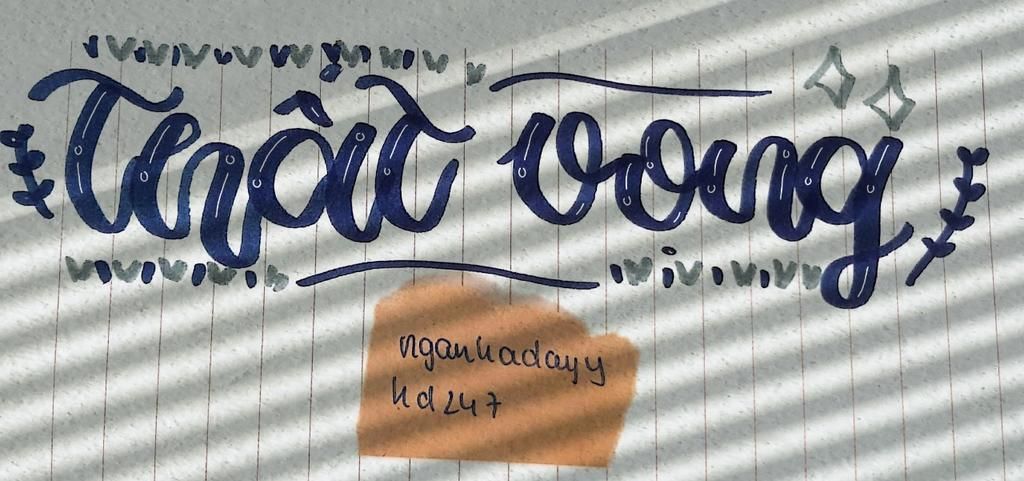 Thất vọng
nganhadayy
hd247